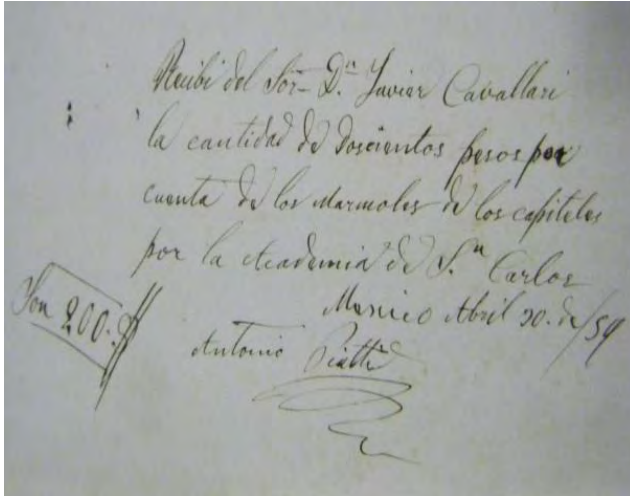 Recibi del Sor. Dn. Javier Cavallari
la cantidad de Doscientos pesos por
cuenta de los Marmoles de los capiteles
por la Academia de S.n Carlos
Son 200. $
Mexico Abril 20. de /59
Antonio Piatti